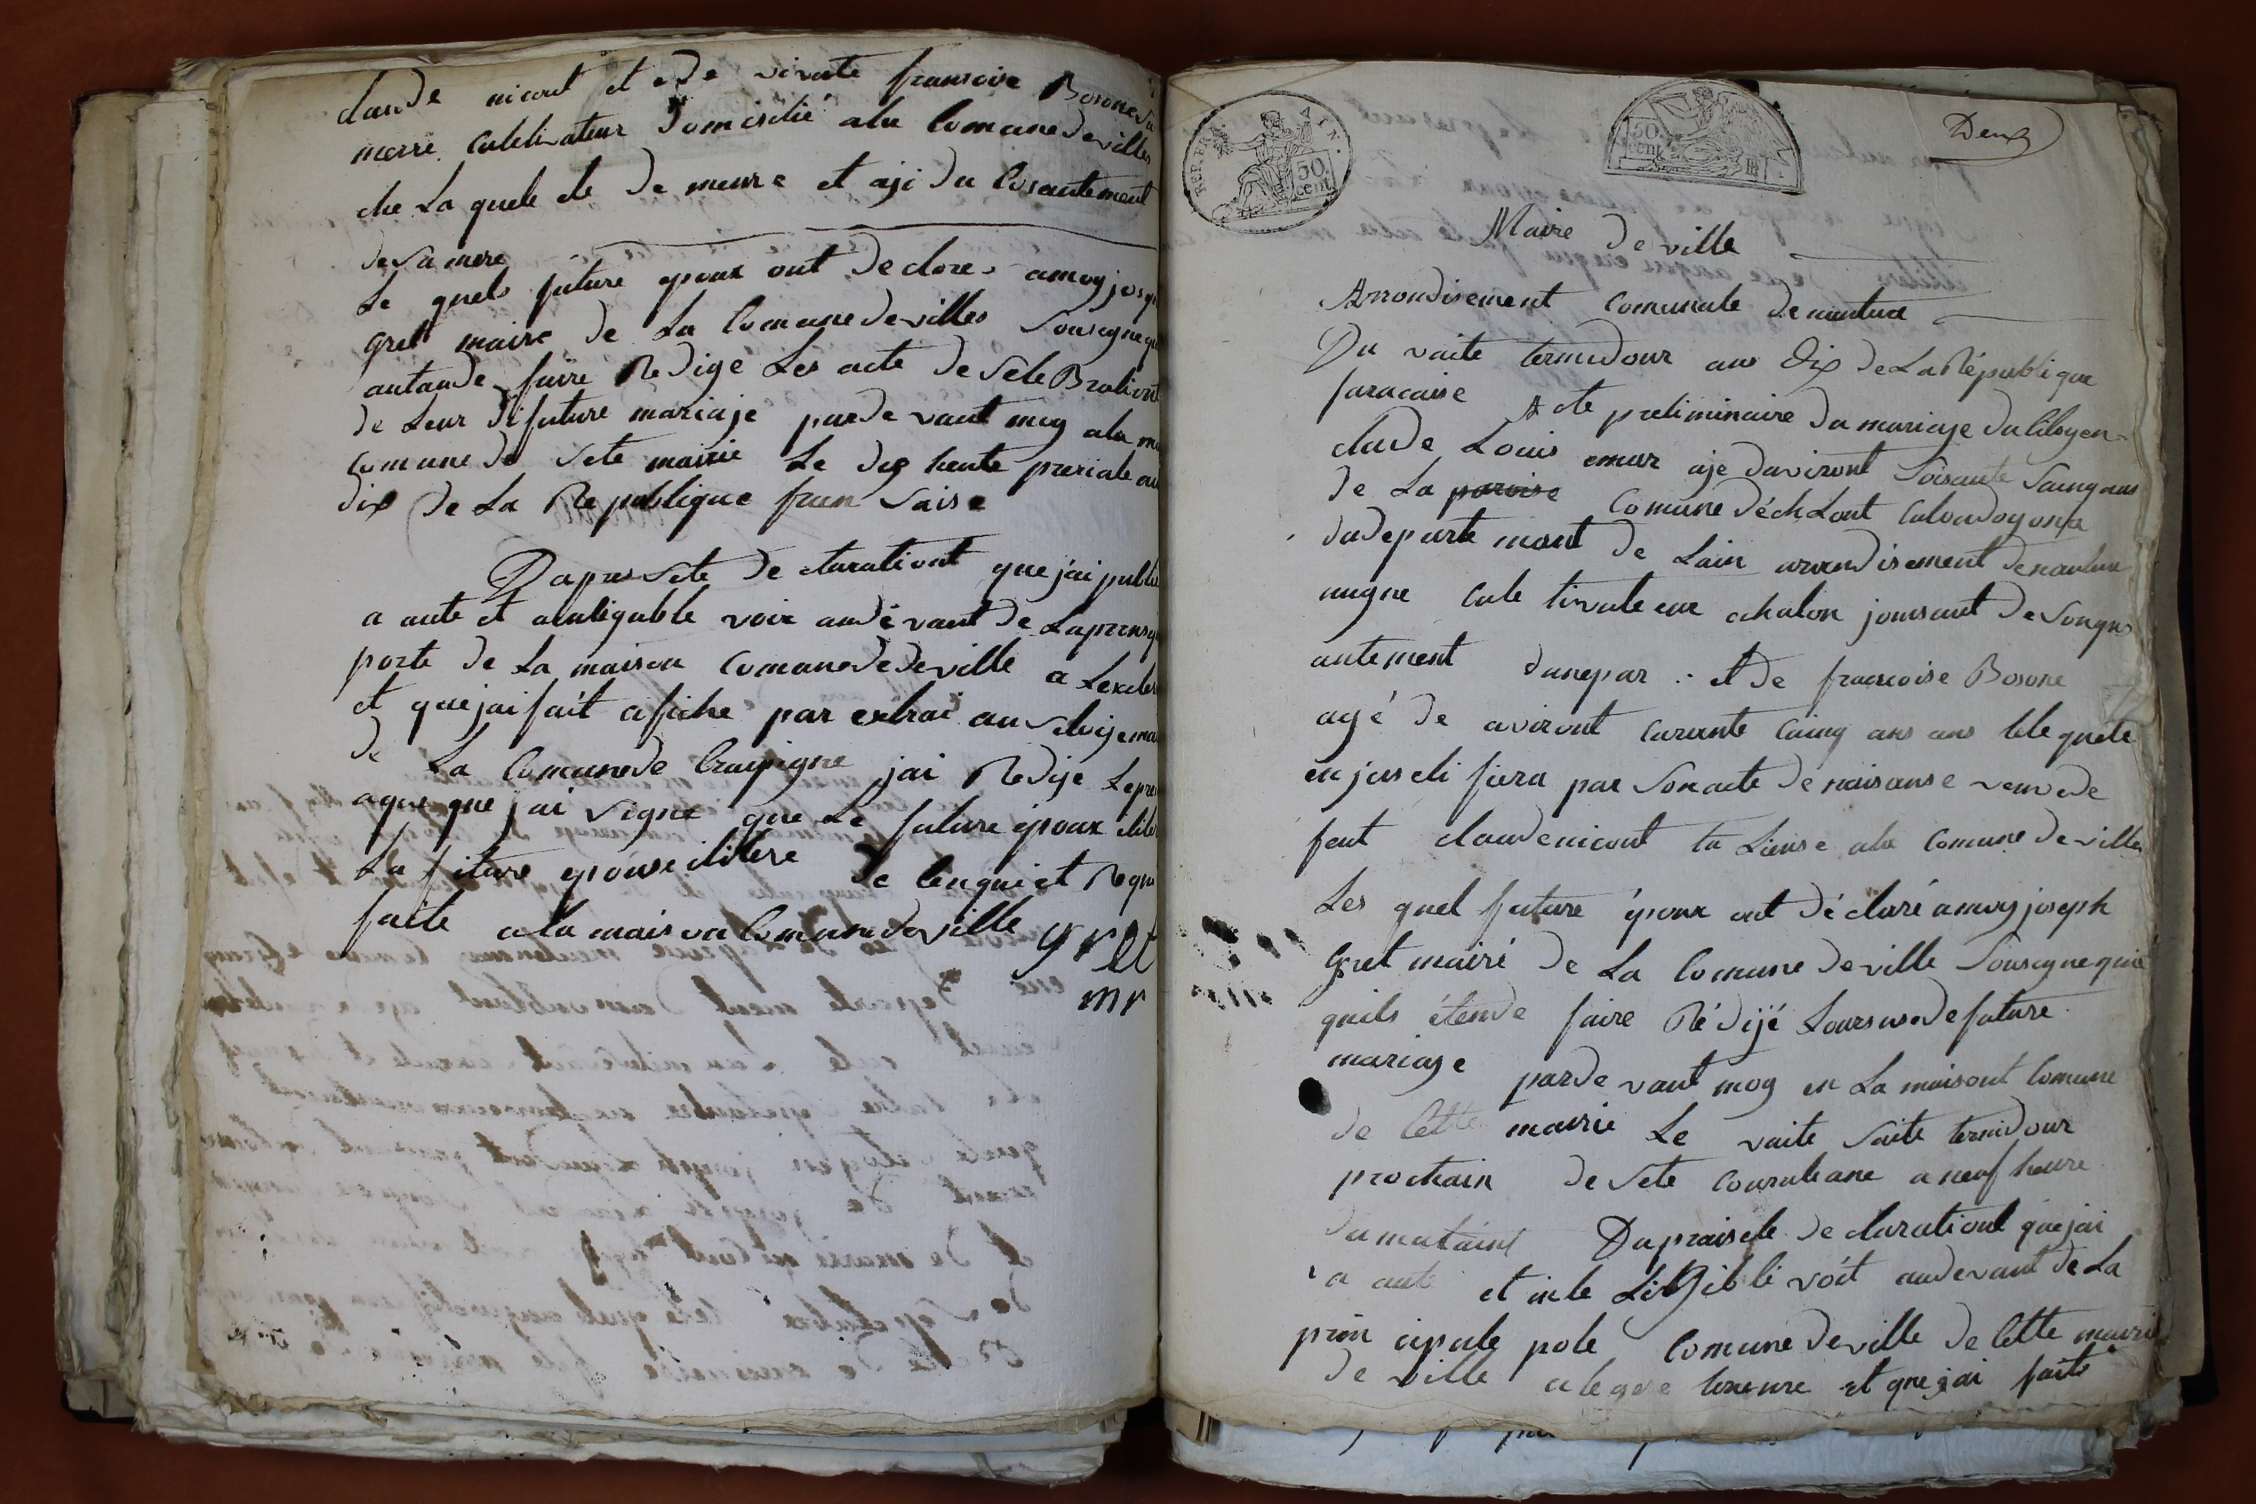 claude nicout et de vivate fransoise Bosone sa
merre cultivateur domisilié ala Comune de villes
che La quele ele de meure et aji du Cosantement
de sa mere
Le quels future epoux ont declare amoy josep
gret maire de La Comune de villes Sousigne qu
autande faire Redige Les acte de Sele Bration
de Leur di future mariaje par de vant moy ala m
comune de Sete mairie Le dis heute preriale an
dix de La Republique fran Saise
Dapres Sete declarationt que jai publie
a aute et aintigable voix audevant de Laprinsip
porte de La maison Comune de ville a Lexter
et que jai fait afiche par extrai au
de La Comune de Craipigne jai Redije Le pre
aque que jai Signe que Le future epoux
La fiture epouse ilitere de Cenquiet Requi
faite a la maison Comune de ville gret
mr
REP. FRA. 50 cent AIN.
50 cent
Deux
Maire de ville
Arrondisement Comunale de nantua
Du vaite termedour an Dix de La République
faracaise Acte preliminaire du mariaje du Citoyen
claude Louis emar aje daviront Soisante Saing ans
de La paroise Comune déchLont
du departe mont de Lain arondisement de nantua
cule tivateur achalon jouisant de Son
antement dunepar et de francoise Bosone
agé de aviront carante Caing ans ans lele quele
en jus eli fiera par Son acte de naisanse veuve de
feut claude nicout ta Liense ala Comune de villes
Les quel future époux ont déclaré amoy joseph
Gret mairé de La Comune de ville Sousigne quie
quils étende faire Rédijé Leurs de future
mariage par de vant moy en La maisont Comune
de Cette mairie Le vaite Saite termidour
prochain de Sete Courante ane a neuf heure
du mataint Dapraisele declarationt que jai
a aute et inte LiGible voit audevant de La
prin cipale pole Comune de ville de Cette mairie
de ville et que jai faite